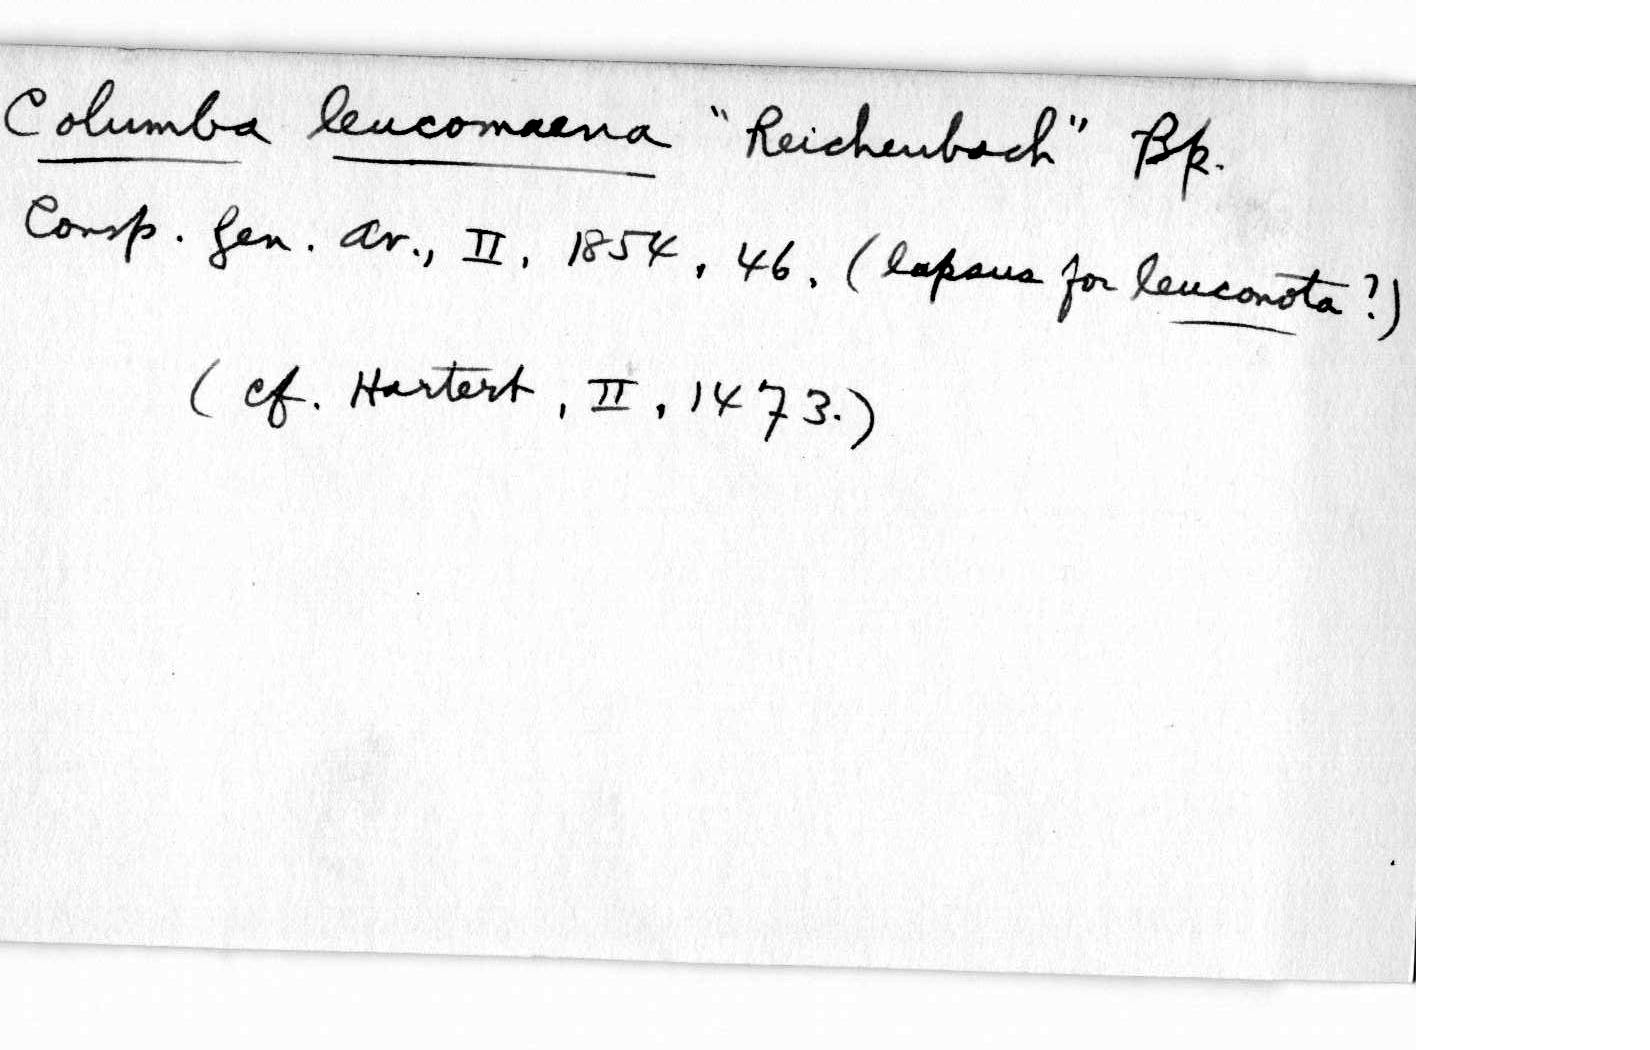 Columba leucomaena "Reichenbach" Bp.
Consp. Gen. Av., II, 1854, 46. (lapsus for leuconota?)
(cf. Hartert, II, 1473.)